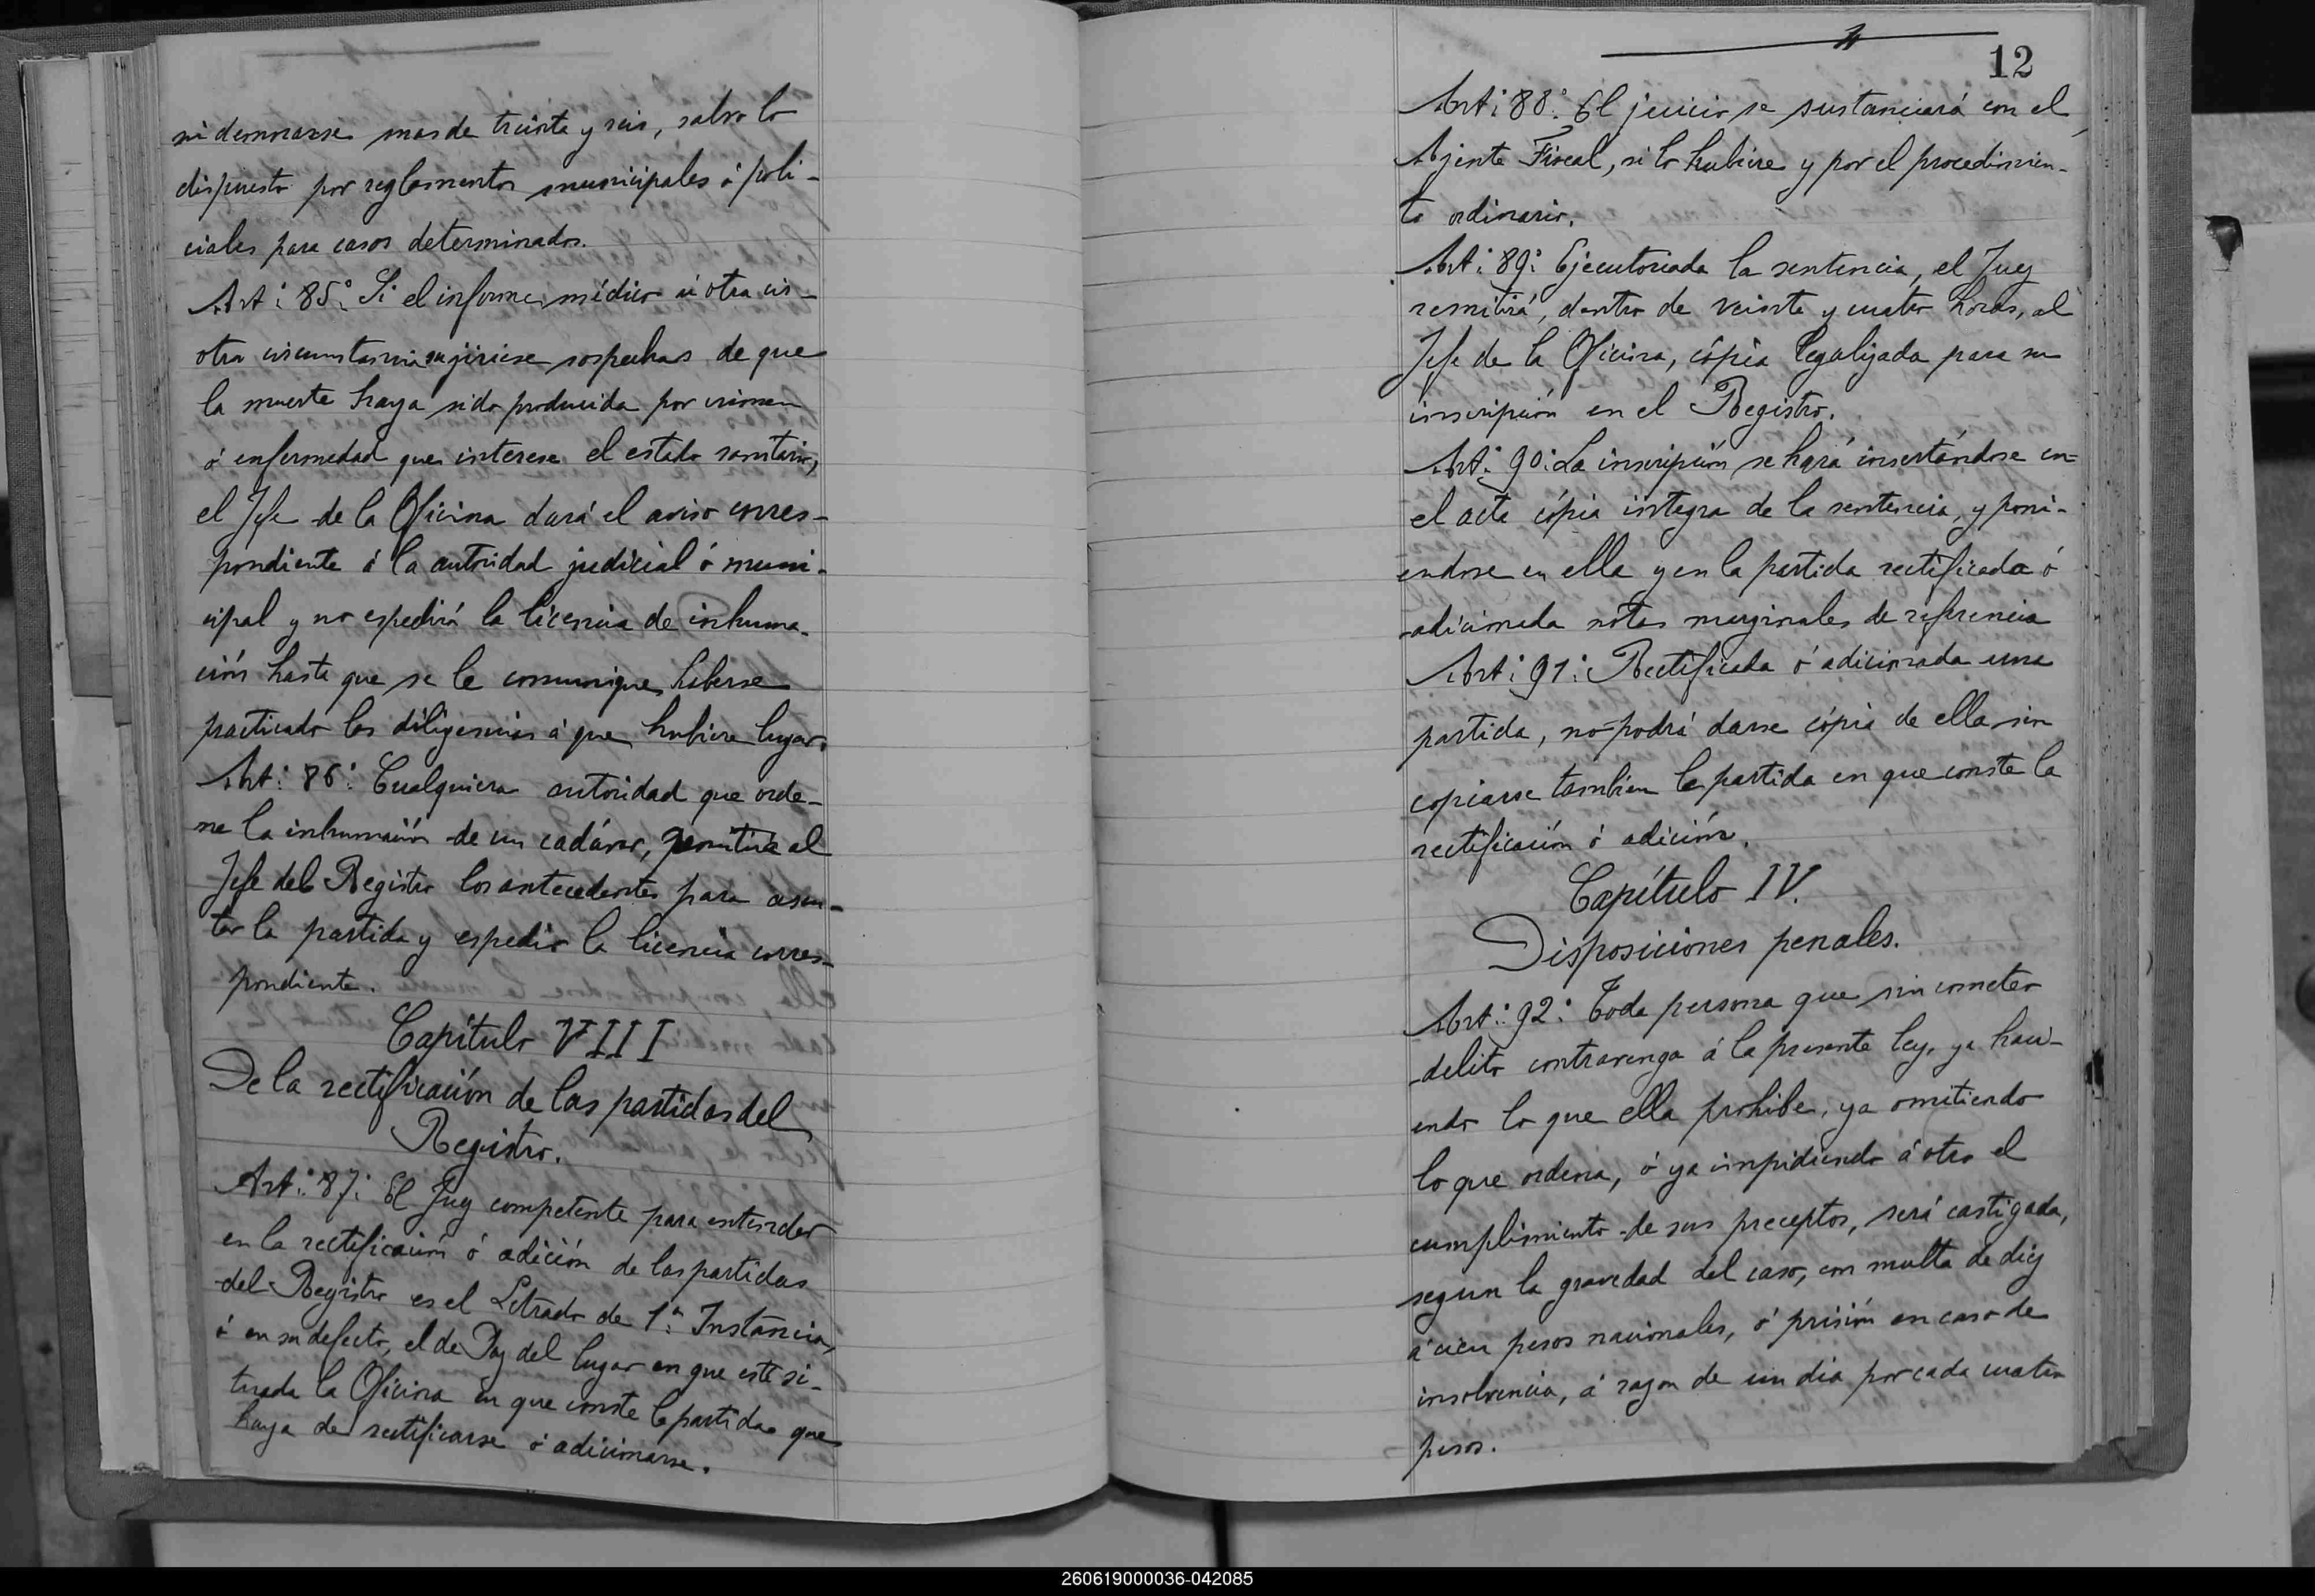 ni demorarse mas de treinta y seis, salvo lo
dispuesto por reglamentos municipales ó poli-
ciales para casos determinados.
Art: 85º: Si el informe médico ú otra cir-
otra circunstancia sujiriese sospechas de que
la muerte haya sido producida por crimen
ó enfermedad que interese el estado sanitario,
el Jefe de la Oficina dará el aviso corres-
pondiente á la autoridad judicial ó muni-
cipal y no espedirá la licencia de inhuma-
ción hasta que se le comunique haberse
practicado las diligencias á que hubiere lugar.
Art: 86: Cualquiera autoridad que orde-
ne la inhumación de un cadáver, remitirá al
Jefe del Registro los antecedentes para asen-
tar la partida y espedir la licencia corres-
pondiente.
Capítulo VIII
De la rectificación de las partidas del
Registro.
Art: 87: El Juez competente para entender
en la rectificación ó adición de las partidas
del Registro es el Letrado de 1ª Instancia,
ó en su defecto, el de Paz del lugar en que esté si-
tuada la Oficina en que conste la partida que
haya de rectificarse ó adicionarse.
12
Art: 88: El juicio se sustanciará con el
Ajente Fiscal, si lo hubiere y por el procedimien-
to ordinario.
Art: 89: Ejecutoriada la sentencia, el Juez
remitirá, dentro de veinte y cuatro horas, al
Jefe de la Oficina, cópia legalizada para su
inscripción en el Registro.
Art: 90: La inscripción se hará insertándose en
el acta cópia integra de la sentencia, y poni-
endose en ella y en la partida rectificada ó
adicionada notas marginales de referencia
Art: 91: Rectificada ó adicionada una
partida, no podrá darse cópia de ella sin
copiarse tambien la partida en que conste la
rectificación ó adición.
Capítulo IV.
Disposiciones penales.
Art: 92: Toda persona que sin cometer
delito contravenga á la presente ley, ya haci-
endo lo que ella prohibe, ya omitiendo
lo que ordena, ó ya impidiendo á otro el
cumplimiento de sus preceptos, será castigada,
segun la gravedad del caso, con multa de diez
á cien pesos nacionales, ó prisión en caso de
insolvencia, á razon de un dia por cada cuatro
pesos.
260619000036-042085